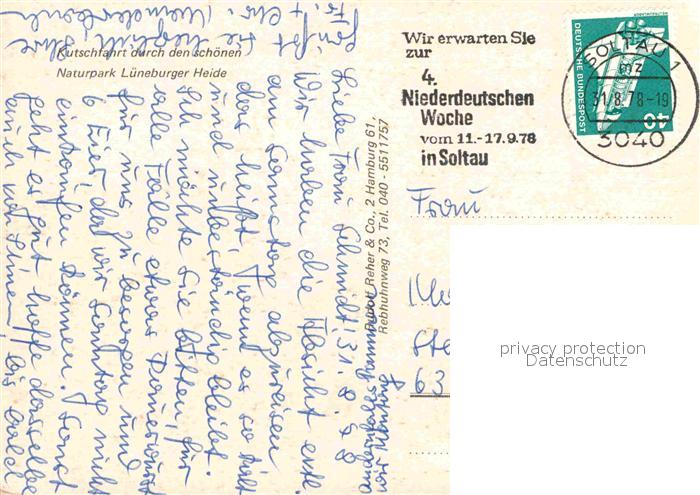 Kutschfahrt durch den schönen
Naturpark Lüneburger Heide
Wir erwarten Sie
zur
4.
Niederdeutschen
Woche
vom 11.-17.9.78
in Soltau
SOLTAU 1
mz
31.8.78-19
3040
DEUTSCHE BUNDESPOST
40
Rudolf Reher & Co., 2 Hamburg 61,
Rebhuhnweg 73, Tel. 040 - 5511757
Frau
63
privacy protection
Datenschutz
Liebe Frau Schmidt! 31. 8. 78
Wir haben die Absicht erst
am Samstag abzureisen
das heißt, wenn es so kalt
und unbeständig bleibt.
Ich möchte Sie bitten, für
alle Fälle etwas Dauerwurst
für uns zu besorgen und
6 Eier, da wir Samstag nicht
einkaufen können. Sonst
geht es gut hoffe dasselbe
auch von Ihnen bis bald